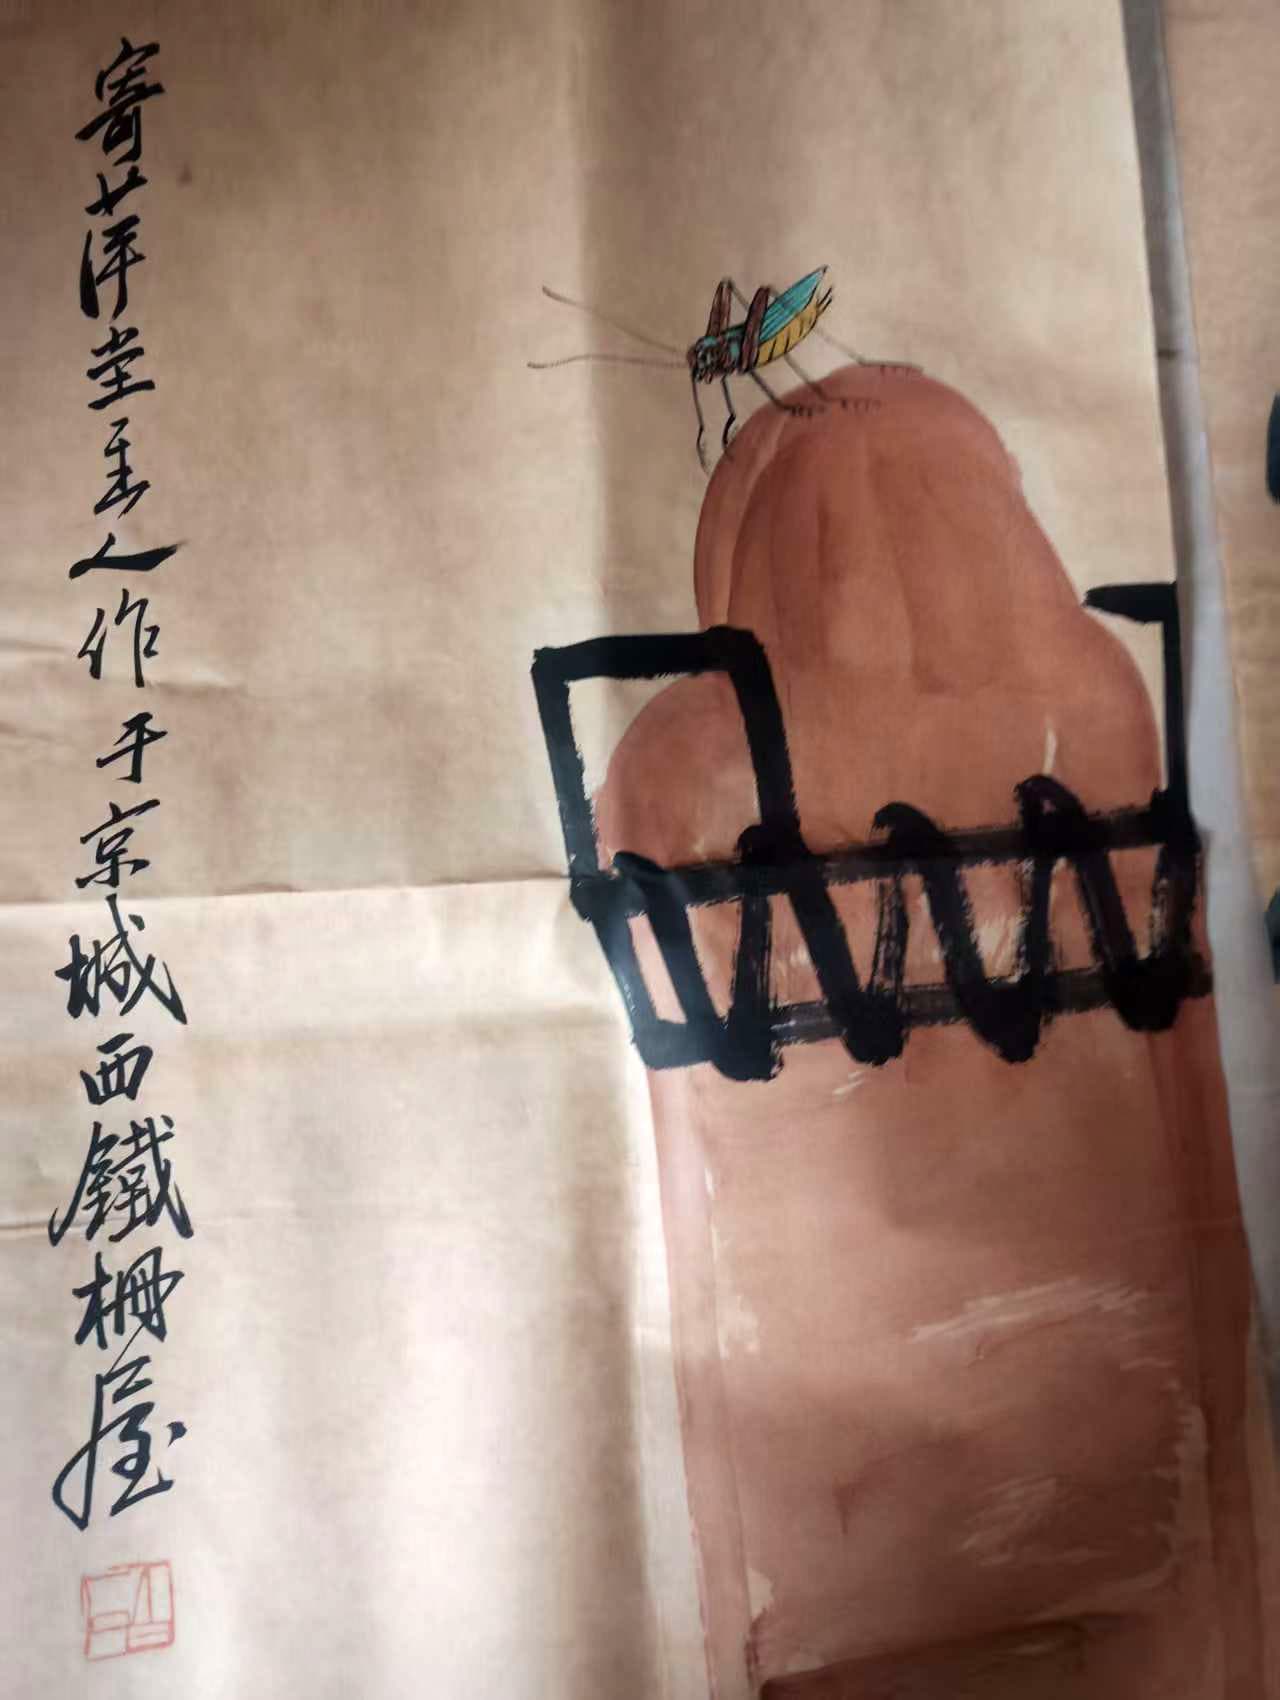 寄萍堂主人作于京城西鐵柵屋